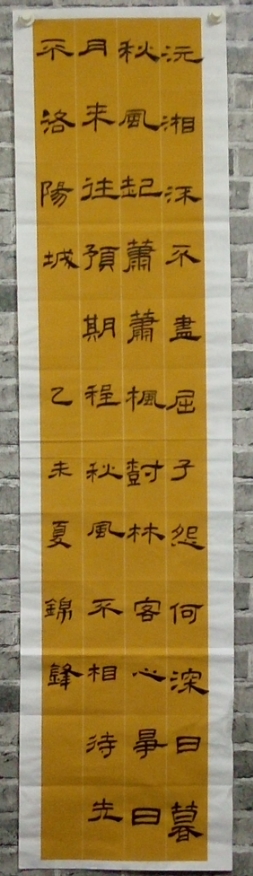 沅湘流不盡屈子怨何深日暮
秋風起蕭蕭楓樹林客心爭日
月来往預期程秋風不相待先
至洛陽城乙未夏錦鋒